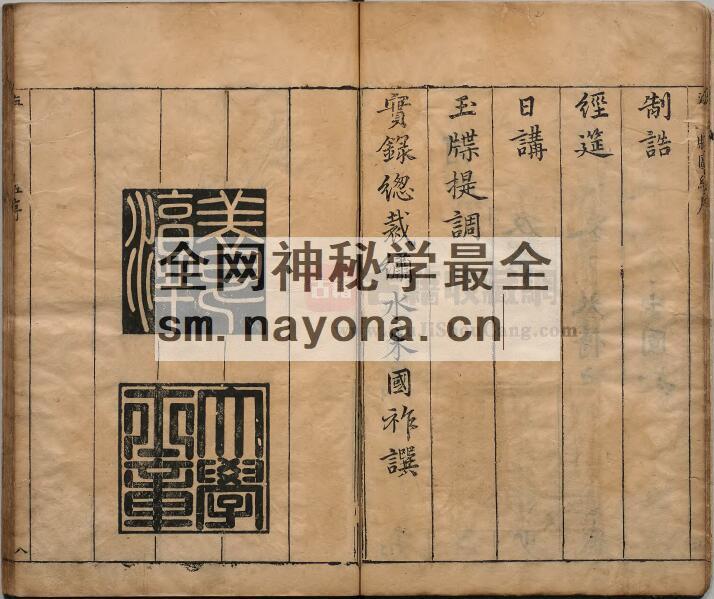 制誥
經筵
日講
玉牒提調
實錄總裁 水朱國祚撰
大學
八
全网神秘学最全
sm. nayona. cn